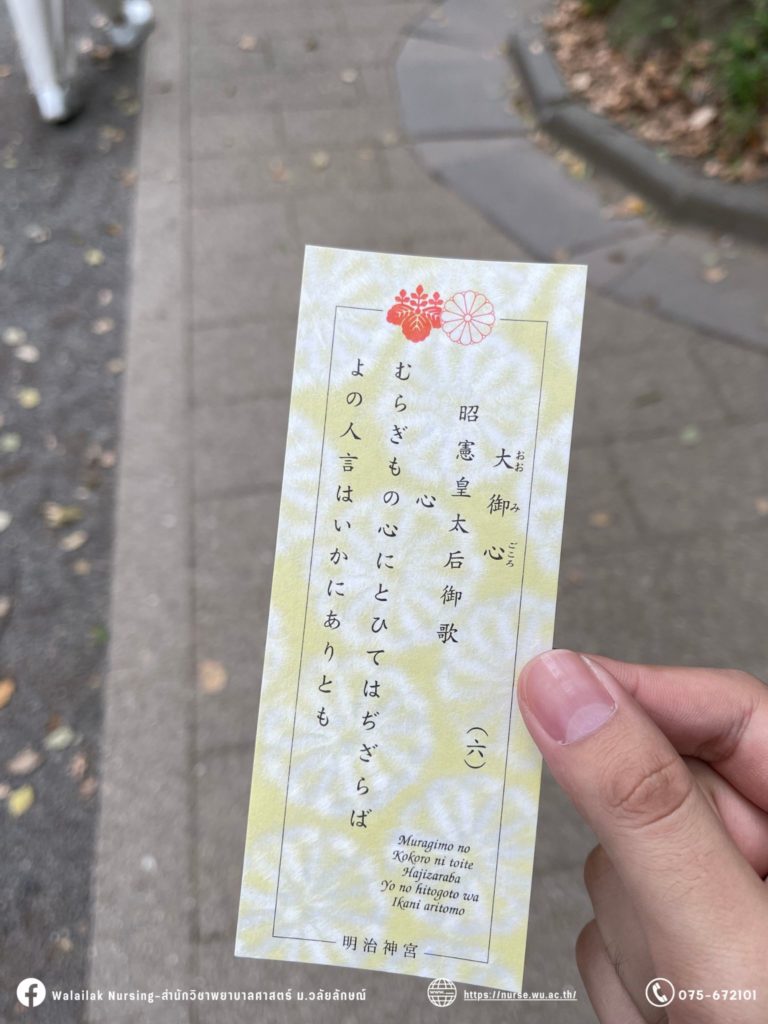 大御心
おおみごころ
昭憲皇太后御歌
(六)
心
むらぎもの心にとひてはぢざらば
よの人言はいかにありとも
Muragimo no
Kokoro ni toite
Hajizaraba
Yo no hitogoto wa
Ikani aritomo
明治神宮
Walailak Nursing-สำนักวิชาพยาบาลศาสตร์ ม.วลัยลักษณ์
https://nurse.wu.ac.th/
075-672101